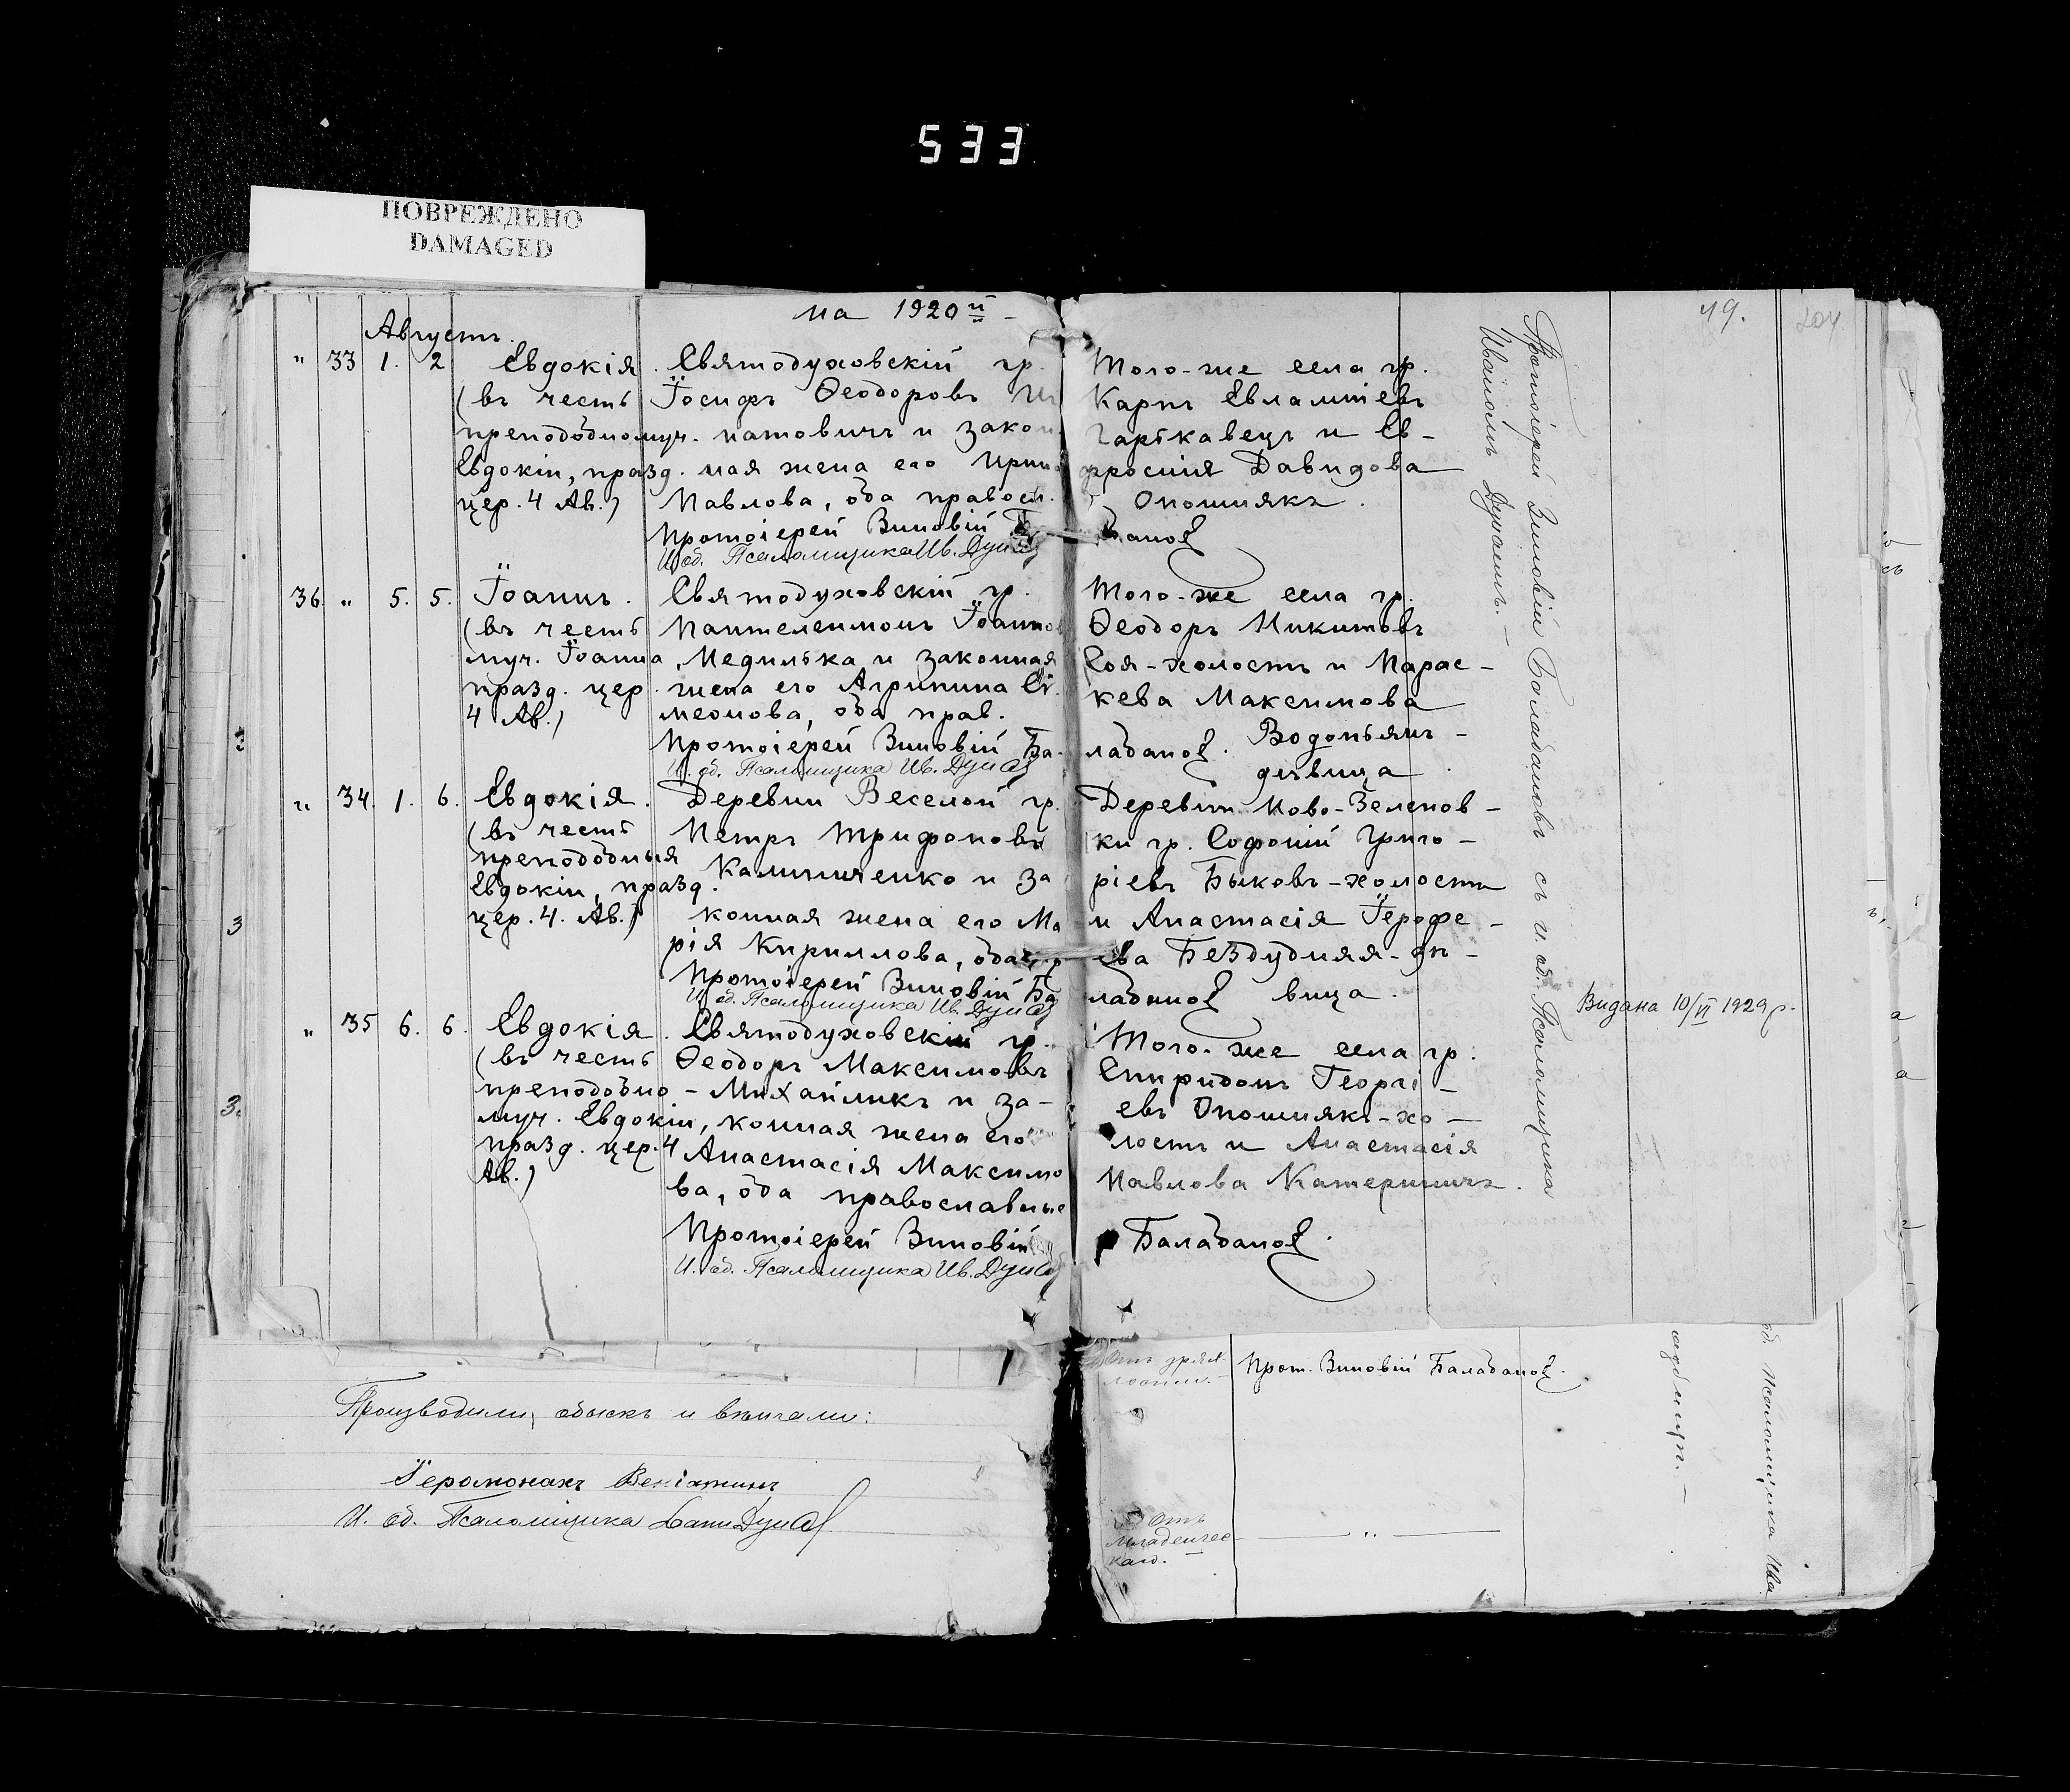 533
ПОВРЕЖДЕНО
DAMAGED
на 1920й
19.
204
Августъ.
" 33 1. 2 Евдокія.
(въ честь
преподобномуч.
Евдокіи, празд.
цер. 4 Ав.)
Святодуховскій гр.
Іосифъ Ѳеодоровъ
натовичъ и закон
ная жена его Ирина
Павлова, оба правосл.
Протоіерей Зиновій
И. об. Псаломщика Ив.
Того-же села гр.
Карпъ Евлампіевъ
Гарькавецъ и Ев-
фросинія Давидова
Опошнякъ.
36 " 5. 5. Іоаннъ.
(въ честь
муч. Іоанна,
празд. цер.
4 Ав.)
Святодуховскій гр.
Пантелеимонъ Іоаннов
Медилька и законная
жена его Агрипина Си
меонова, оба прав.
Протоіерей Зиновій Ба-
И. об. Псаломщика Ив.
Того-же села гр.
Ѳеодоръ Никитовъ
Соя-холостъ и Парас-
кева Максимова
ладанов. Водопьянъ-
дѣвица
" 34 1. 6. Евдокія.
(въ честь
преподобныя
Евдокіи, празд.
цер. 4. Ав.)
Деревни Веселой гр.
Петръ Трифоновъ
Калиниченко и за
конная жена его Ма
рія Кириллова, оба
Протоіерей Зиновій Ба
И. об. Псаломщика Ив.
Деревни Ново-Зеленов-
ки гр. Софоній Григо-
ріевъ Быковъ-холостъ
и Анастасія Іерофе-
ева Бездудняя-дѣ-
ладанов вица.
" 35 6. 6. Евдокія.
(въ честь
преподобно-
муч. Евдокіи,
празд. цер. 4
Ав.)
Святодуховскій гр.
Ѳеодоръ Максимовъ
Михайликъ и за-
конная жена его
Анастасія Максимо
ва, оба православные
Протоіерей Зиновій
И. об. Псаломщика Ив.
Того-же села гр.
Спиридонъ Георгі-
евъ Опошнякъ-хо-
лостъ и Анастасія
Павлова Катериничъ.
Баладанов.
Протоіерей Зиновій Баладановъ съ и. об. Псаломщика
Видана 10/VI 1929 р.
Производили обыскъ и вѣнчали:
Іеромонахъ Веніаминъ
И. об. Псаломщика
Отъ дрях
лости.
Прот. Зиновій Баладанов.
Отъ
младенчес
каго.
об. Псаломщика Ива
3
3.